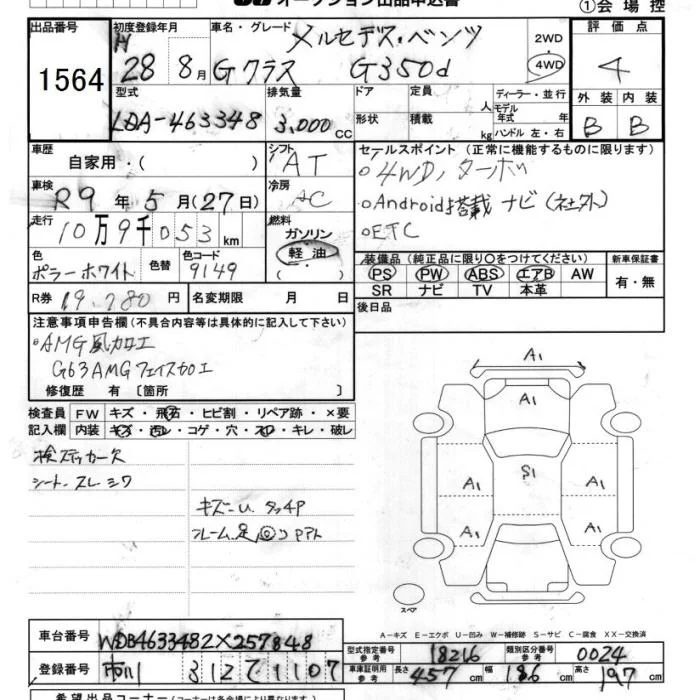 オークション出品申込書 ①会場控
出品番号 初度登録年月 車名・グレード 2WD 評価点
1564 H 28 8月 メルセデス・ベンツ Gクラス G350d 4WD 4
型式 排気量 ドア 定員 人 ディーラー・並行 外装 内装
LDA-463348 3,000cc 形状 積載 kg モデル年式 年 ハンドル 左・右 B B
車歴 自家用・( ) シフト AT セールスポイント (正常に機能するものに限ります)
○4WD、ターボ
車検 R9年5月(27日) 冷房 AC ○Android搭載 ナビ(社外)
走行 10万9千053km 燃料 ガソリン 軽油 ( ) ○ETC
色 ポラーホワイト 色替 色コード 9149
装備品 (純正品に限り○をつけてください) 新車保証書
PS PW ABS エアB AW 有・無
SR ナビ TV 本革
R券 19,780円 名変期限 月 日 後日品
注意事項申告欄(不具合内容等は具体的に記入して下さい)
○AMG風加工
G63AMGフェイス加工
修復歴 有 〔箇所 〕
検査員 FW キズ・飛石・ヒビ割・リペア跡・×要
記入欄 内装 キズ・汚レ・コゲ・穴・スレ・キレ・破レ
検ステッカー欠
シート、スレ シワ
キズ〜U、タッチP
A1
A1
S1
A1 A1
A1 A1
スペア
A-キズ E-エクボ U-凹み W-補修跡 S-サビ C-腐食 XX-交換済
車台番号 WDB4633482X257848
型式指定番号 参考 18216 類別区分番号 参考 0024
登録番号 市川 312 て 1107
車庫証明用 参考 長さ 457cm 幅 186cm 高さ 197cm
希望出品コーナー(コーナーは各会場により異なります)